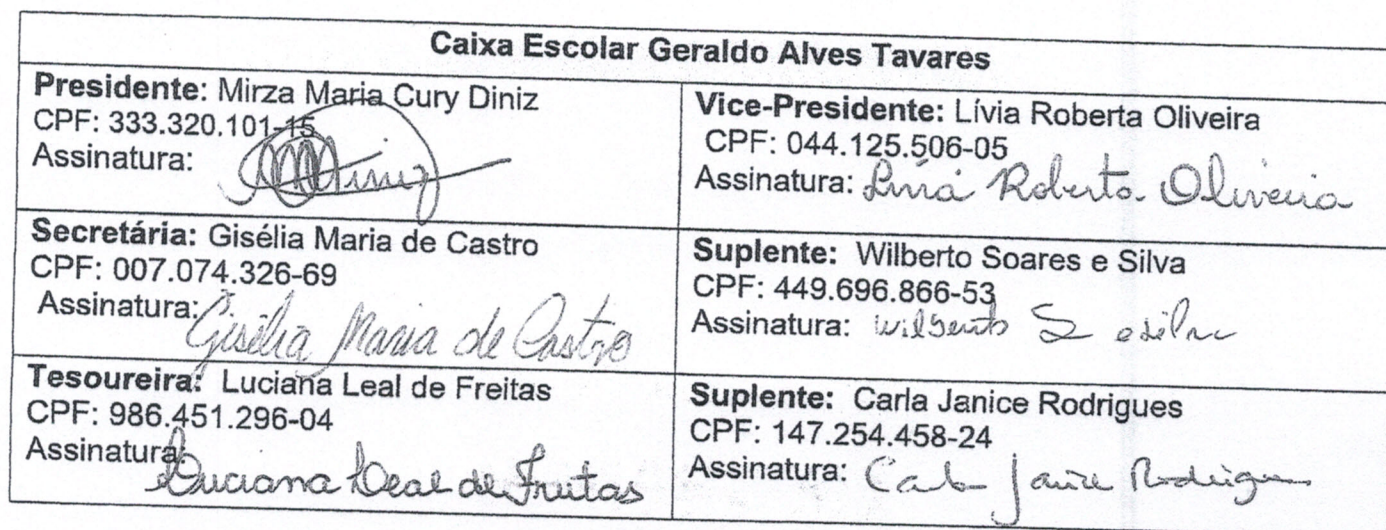 Caixa Escolar Geraldo Alves Tavares
Presidente: Mirza Maria Cury Diniz
CPF: 333.320.101-15
Assinatura: Diniz
Vice-Presidente: Lívia Roberta Oliveira
CPF: 044.125.506-05
Assinatura: Lívia Roberta Oliveira
Secretária: Gisélia Maria de Castro
CPF: 007.074.326-69
Assinatura: Gisélia Maria de Castro
Suplente: Wilberto Soares e Silva
CPF: 449.696.866-53
Assinatura: Wilberto S e silva
Tesoureira: Luciana Leal de Freitas
CPF: 986.451.296-04
Assinatura: Luciana Leal de Freitas
Suplente: Carla Janice Rodrigues
CPF: 147.254.458-24
Assinatura: Carla Janice Rodrigues